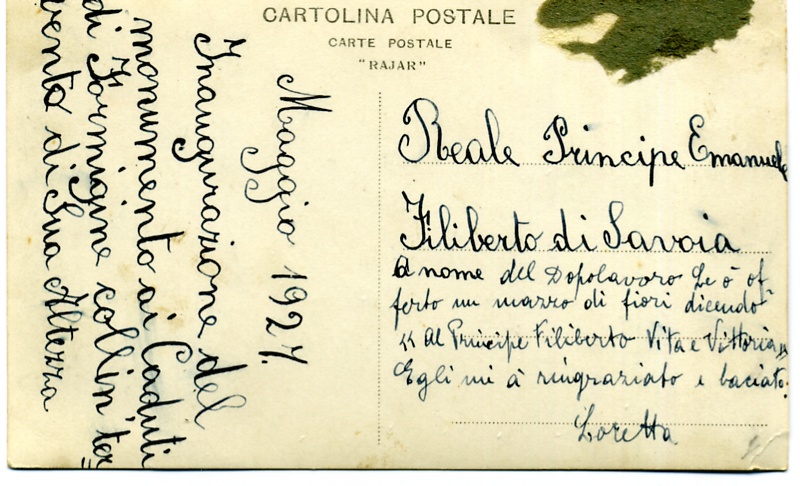 CARTOLINA POSTALE
CARTE POSTALE
"RAJAR"
Maggio 1927.
Inaugurazione del
monumento ai Caduti
di Formigine collin'ter
vento di Sua Altezza
Reale Principe Emanuele
Filiberto di Savoia
A nome del Dopolavoro Le ò of
ferto un mazzo di fiori dicendo
"Al Principe Filiberto Vita e Vittoria"
Egli mi à ringraziato e baciato.
Loretta